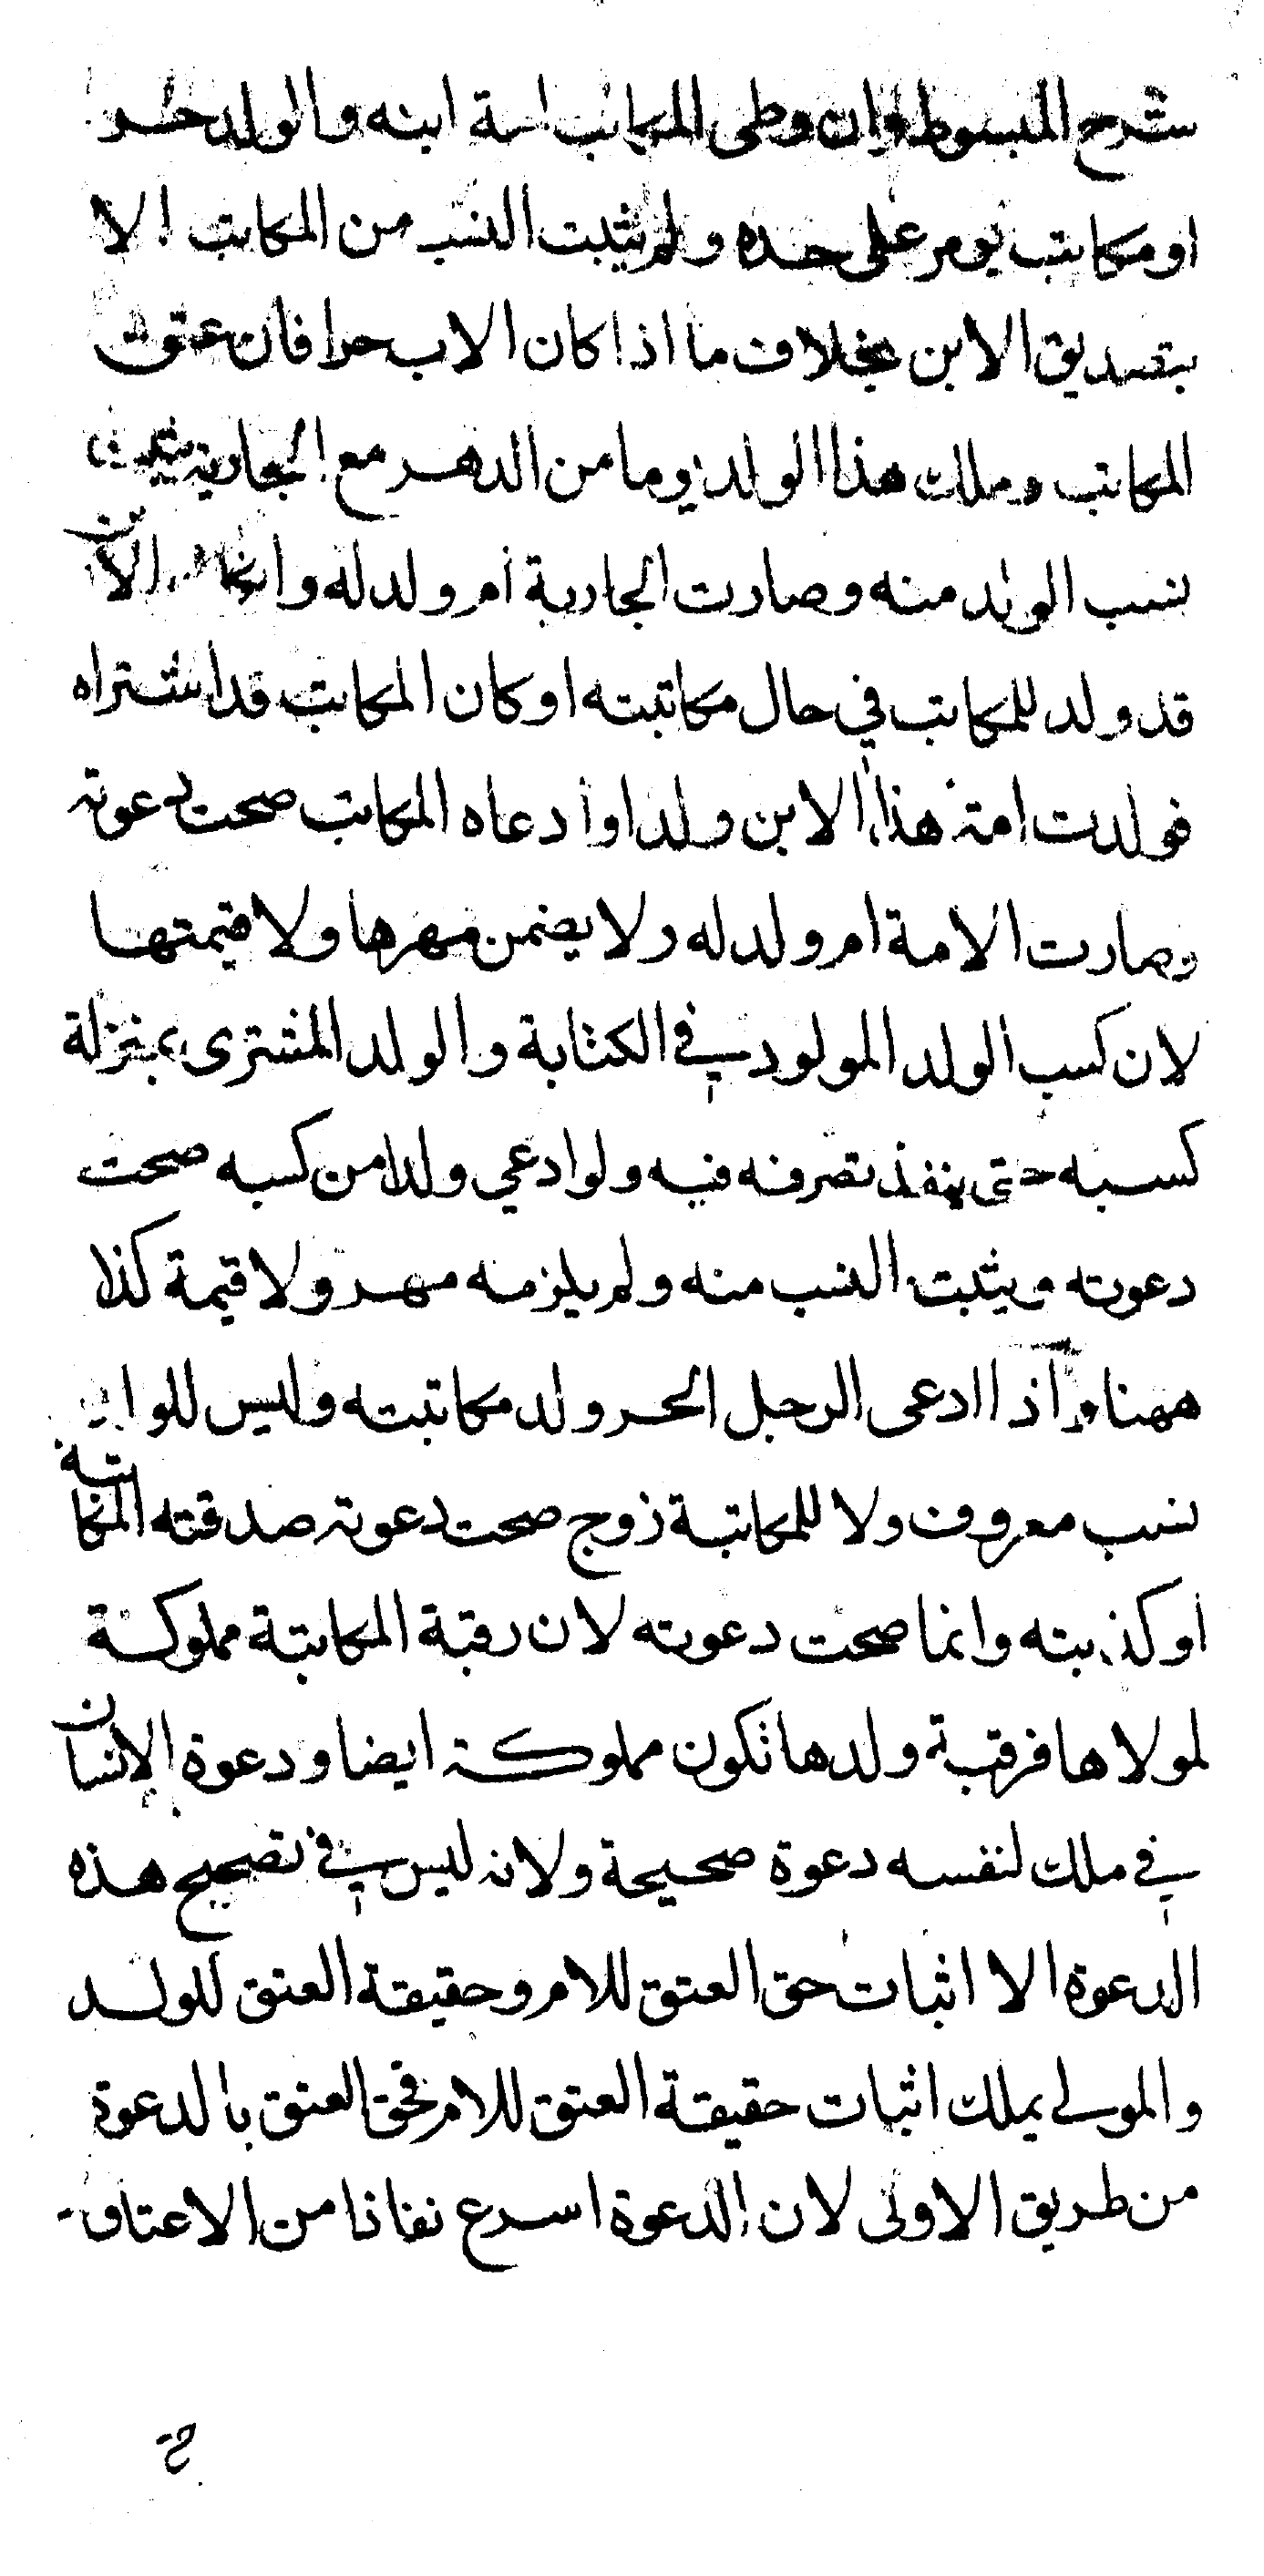 شرح المبسوط وان وطى المكاتب امة ابنه والولد حر
او مكاتب يومر على حده ولم يثبت النسب من المكاتب الا
بتصديق الابن بخلاف ما اذا كان الاب حرا فان عتق
المكاتب وملك هذا الولد يوما من الدهر مع الجارية يثبت
نسب الولد منه وصارت الجارية ام ولد له وان كان الابن
قد ولد للمكاتب في حال مكاتبته او كان المكاتب قد اشتراه
فولدت امة هذا الابن ولدا وادعاه المكاتب صحت دعوته
وصارت الامة ام ولد له ولا يضمن مهرها ولا قيمتها
لان كسب الولد المولود في الكتابة والولد المشترى بمنزلة
كسبه حتى ينفذ تصرفه فيه ولو ادعي ولدا من كسبه صحت
دعوته ويثبت النسب منه ولم يلزمه مهر ولا قيمة كذا
ههنا واذا ادعى الرجل الحر ولد مكاتبته وليس للولد
نسب معروف ولا للمكاتبة زوج صحت دعوته صدقته المكاتبة
او كذبته وانما صحت دعوته لان رقبة المكاتبة مملوكة
لمولاها فرقبة ولدها تكون مملوكة ايضا ودعوة الانسان
في ملك لنفسه دعوة صحيحة ولانه ليس في تصحيح هذه
الدعوة الا اثبات حق العتق للام وحقيقة العتق للولد
والمولى يملك اثبات حقيقة العتق للام فحق العتق بالدعوة
من طريق الاولى لان الدعوة اسرع نفاذا من الاعتاق